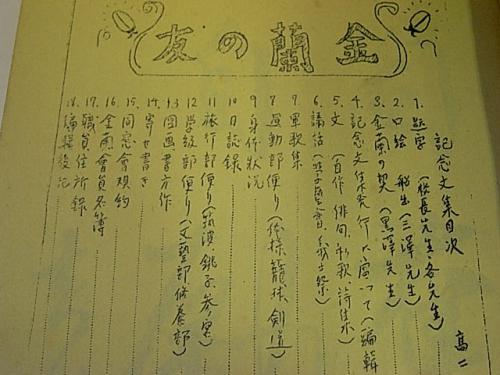 金蘭の友
記念文集目次
高二
1. 題字(校長先生・各先生)
2. 口絵 (三澤先生)
3. 金蘭の契(黒澤先生)
4. 記念文集発行に當つて(編輯
5. 文(自作 俳句、和歌、詩
6. 講話
7. 軍歌集
8. 運動部便り(体操、籠球、剣道)
9. 身体状況
10. 日誌録
11. 旅行部便り(銚子
12. 学級部便り(文藝部修養部)
13. 図画書方作
14. 寄せ書き
15. 同窓會規約
16. 金蘭會員名簿
17. 職員住所録
18. 編輯後記